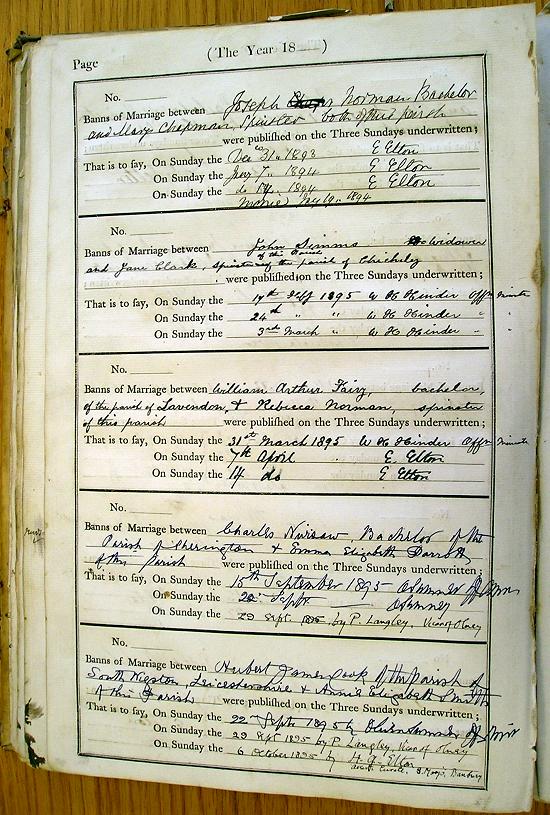 (The Year 18 )
Page
No.
Banns of Marriage between Joseph Norman Bachelor
and Mary Chapman, Spinster both of this parish
were published on the Three Sundays underwritten;
That is to say, On Sunday the Dec 31st 1893 E Elton
On Sunday the Jany 7. 1894 E Elton
On Sunday the do 14. 1894 E Elton
1894
No.
Banns of Marriage between John Simms Widower
of this Parish
and Jane Clarke, spinster of the parish of Chicheley
were published on the Three Sundays underwritten;
That is to say, On Sunday the 17th 1895 W H Hinder Offg Minister
On Sunday the 24th " " W H Hinder "
On Sunday the 3rd March " W H Hinder " "
No.
Banns of Marriage between William Arthur Fairy, bachelor,
of the parish of Lavendon, & Rebecca Norman, spinster
of this parish were published on the Three Sundays underwritten;
That is to say, On Sunday the 31st March 1895 W H Hinder Offg Minister
On Sunday the 7th April E Elton
On Sunday the 14 do E Elton
No.
Banns of Marriage between Charles Bachelor of the
Parish of Sherington & Emma Elizabeth
of this Parish were published on the Three Sundays underwritten;
That is to say, On Sunday the 15th September 1895
On Sunday the 22 Septr
On Sunday the 29 Sept. 1895 by P. Langley, Vicar of Olney
No.
Banns of Marriage between Herbert James Cook of the Parish of
South Wigston, Leicestershire & Annie Elizabeth Smith
of this Parish were published on the Three Sundays underwritten;
That is to say, On Sunday the 22 Septr 1895
On Sunday the 29 Sept 1895 by P. Langley, Vicar of Olney
On Sunday the 6 October 1895 by H. G. Elton
Curate, S. Mary's, Banbury